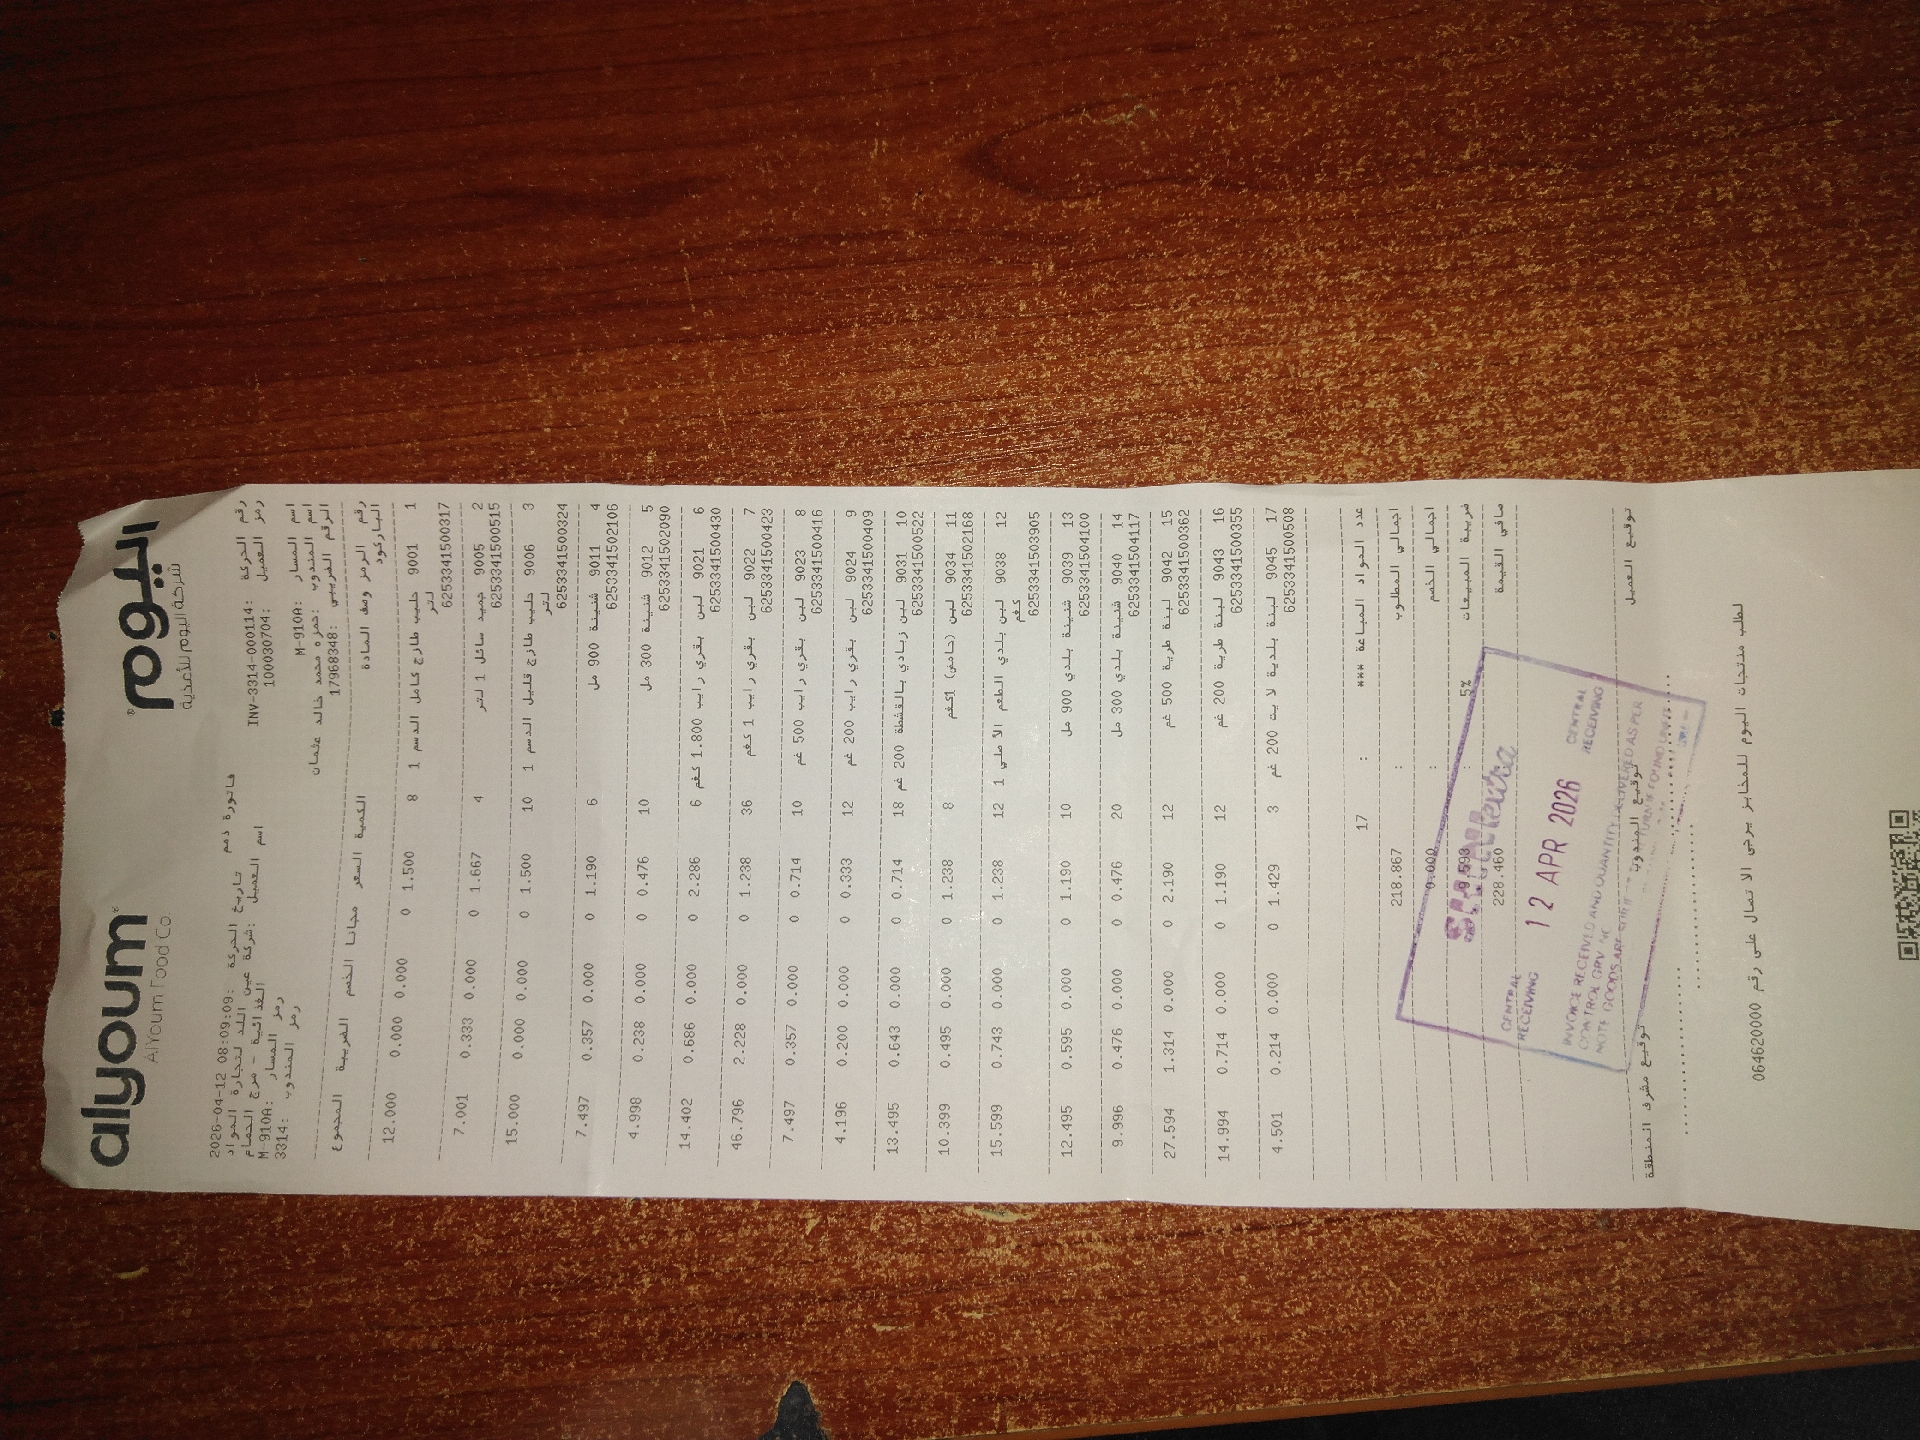 alyoum اليوم
AlYoum Food Co. شركة اليوم للأغذية
فاتورة ذمم
رقم الحركة :INV-3314-000114 تاريخ الحركة :2026-04-12 08:09:09
رمز العميل :100030704 اسم العميل :شركة عين اللد لتجارة المواد
الغذائية - مرج الحمام
اسم المسار :M-910A رمز المسار :M-910A
اسم المندوب :حمزه محمد خالد عثمان رمز المندوب :3314
الرقم الضريبي :17968348
رقم الرمز وصف المادة الكمية السعر مجانا الخصم الضريبة المجموع
الباركود
1 9001 حليب طازج كامل الدسم 1 8 1.500 0 0.000 0.000 12.000
لتر
6253341500317
2 9005 جميد سائل 1 لتر 4 1.667 0 0.000 0.333 7.001
6253341500515
3 9006 حليب طازج قليل الدسم 1 10 1.500 0 0.000 0.000 15.000
لتر
6253341500324
4 9011 شنينة 900 مل 6 1.190 0 0.000 0.357 7.497
6253341502106
5 9012 شنينة 300 مل 10 0.476 0 0.000 0.238 4.998
6253341502090
6 9021 لبن بقري رايب 1.800 كغم 6 2.286 0 0.000 0.686 14.402
6253341500430
7 9022 لبن بقري رايب 1 كغم 36 1.238 0 0.000 2.228 46.796
6253341500423
8 9023 لبن بقري رايب 500 غم 10 0.714 0 0.000 0.357 7.497
6253341500416
9 9024 لبن بقري رايب 200 غم 12 0.333 0 0.000 0.200 4.196
6253341500409
10 9031 لبن زبادي بالقشطة 200 غم 18 0.714 0 0.000 0.643 13.495
6253341500522
11 9034 لبن (حامض) 1كغم 8 1.238 0 0.000 0.495 10.399
6253341502168
12 9038 لبن بلدي الطعم الأصلي 1 12 1.238 0 0.000 0.743 15.599
كغم
6253341503905
13 9039 شنينة بلدي 900 مل 10 1.190 0 0.000 0.595 12.495
6253341504100
14 9040 شنينة بلدي 300 مل 20 0.476 0 0.000 0.476 9.996
6253341504117
15 9042 لبنة طرية 500 غم 12 2.190 0 0.000 1.314 27.594
6253341500362
16 9043 لبنة طرية 200 غم 12 1.190 0 0.000 0.714 14.994
6253341500355
17 9045 لبنة بلدية لايت 200 غم 3 1.429 0 0.000 0.214 4.501
6253341500508
عدد المواد المباعة *** : 17
اجمالي المطلوب : 218.867
اجمالي الخصم : 0.000
ضريبة المبيعات 5% : 9.593
صافي القيمة 228.460
CENTRAL RECEIVING 12 APR 2026 CENTRAL RECEIVING
INVOICE RECEIVED AND QUANTITY DELIVERED AS PER
CONTROL GRV
NOTE GOODS ARE
توقيع العميل توقيع المندوب توقيع مشرف المنطقة
لطلب منتجات اليوم للمخابز يرجى الاتصال على رقم 064620000